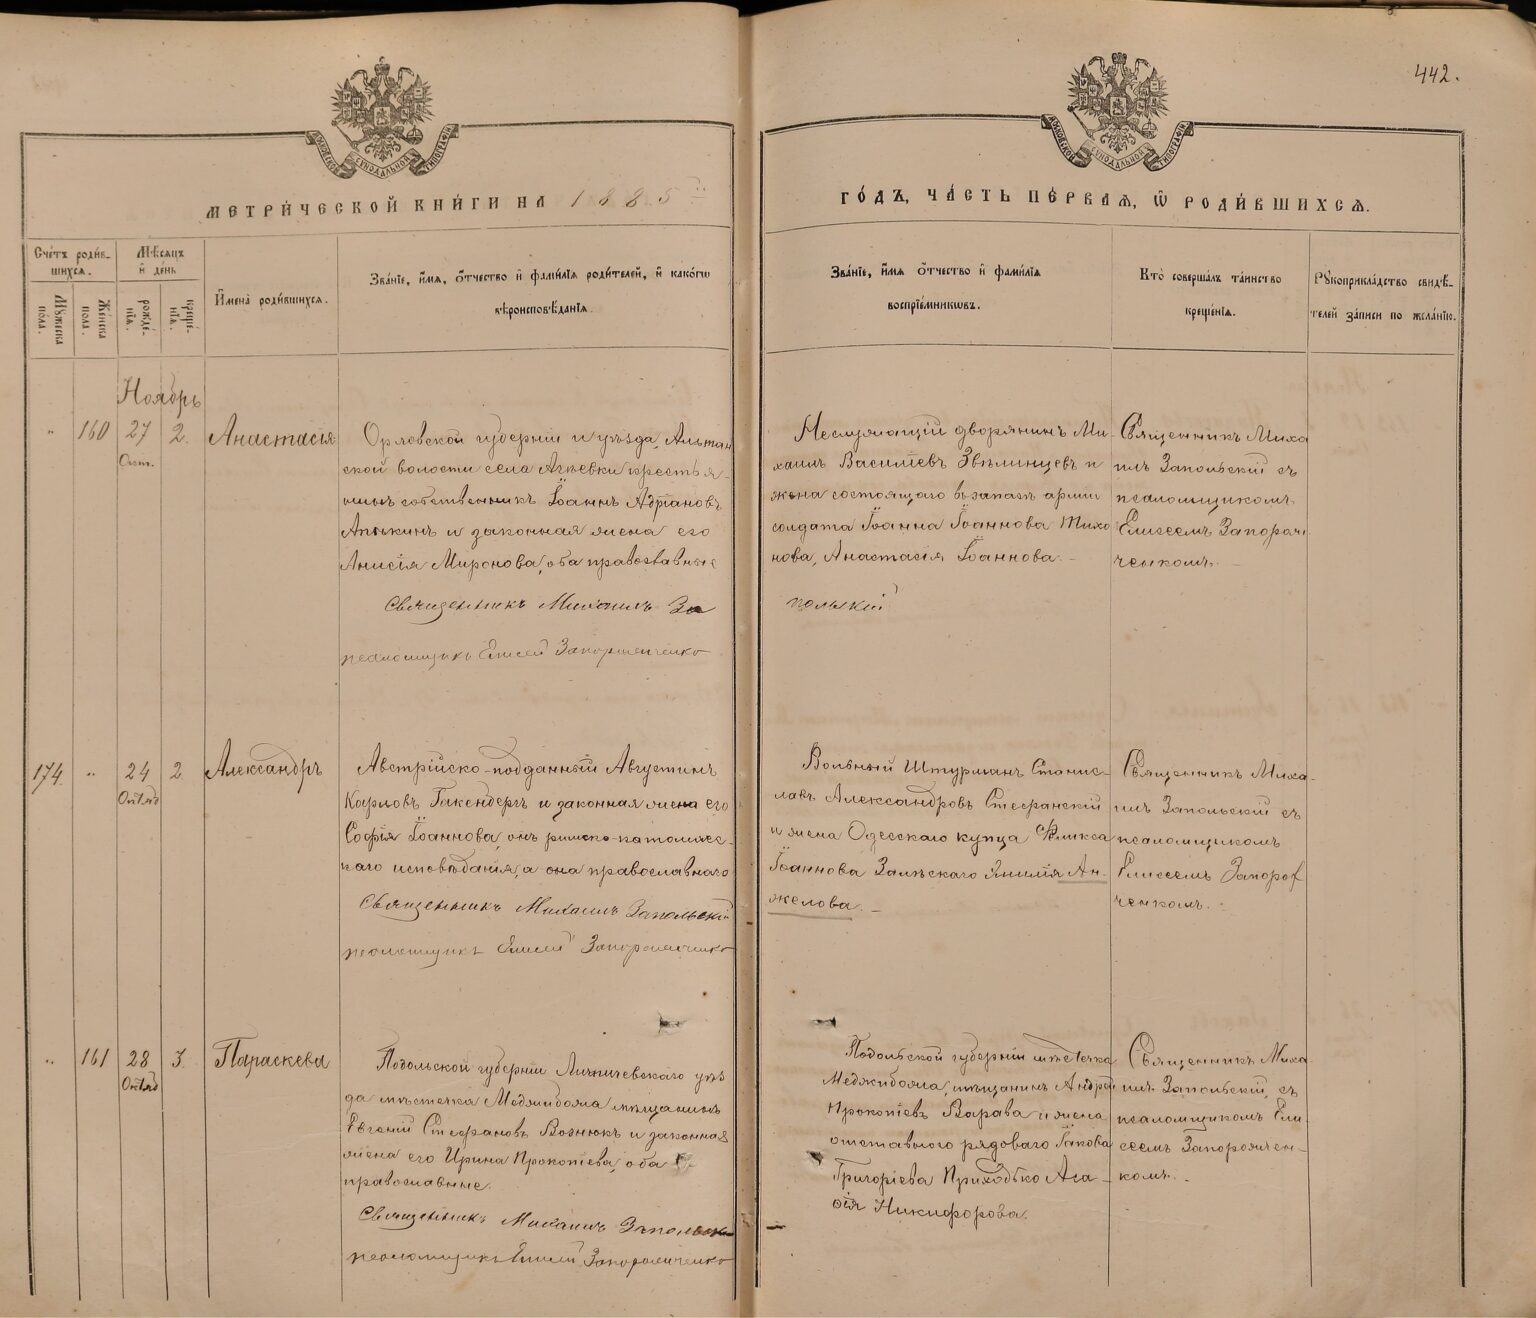 442.
МОСКОВСКОЙ СѴНОДАЛЬНОЙ ТИПОГРАФІИ
МОСКОВСКОЙ СѴНОДАЛЬНОЙ ТИПОГРАФІИ
МЕТРИ́ЧЕСКОЙ КНИ́ГИ НА 1885 й
ГО́ДЪ, ЧА́СТЬ ПЕ́РВАЯ, Ѡ РОДИ́ВШИХСЯ.
Сче́тъ роди́в-
шихся.
Мѣ́сяцъ
и день
Му́жеска
пола.
Же́нска
пола.
рожде́-
нія.
креще́-
нія.
Имена́ роди́вшихся.
Зва́ніе, имя, о́тчество и фами́лія роди́телей, и како́гѡ
вѣроисповѣ́данія.
Зва́ніе, имя о́тчество и фами́лія
воспріе́мниковъ.
Кто̀ соверша́лъ та́инство
креще́нія.
Рукоприкла́дство свидѣ́-
телей за́писи по жела́нію.
Ноябрь
" 160 27 2. Анастасія
Окт.
Орловской губерніи и уѣзда, Альтан
ской волости села Агѣевки крестья-
нинъ собственникъ Іоаннъ Адріановъ
Апѣкинъ и законная жена его
Анисія Миронова, оба православные
Священникъ Михаилъ За
польскій
псаломщикъ Елисей Запорожченко
Неслужащій дворянинъ Ми-
хаилъ Василіевъ Звѣлинцевъ и
жена состоящаго въ запасѣ арміи
солдата Іоанна Іоаннова Тихо
нова, Анастасія Іоаннова.
Священникъ Миха
илъ Запольскій съ
псаломщикомъ
Елисеемъ Запорож
ченкомъ.
174. " 24 2 Александръ
Октяб
Австрійско-подданный Августинъ
Карловъ Гакенбергъ и законная жена его
Софія Іоаннова, онъ римско-католичес-
каго исповѣданія, а она православнаго
Священникъ Михаилъ Запольскій
псаломщикъ Елисей Запорожченко
Вольный Штурманъ Станис-
лавъ Александровъ Стефанскій
и жена Одесскаго купца Феликса
Іоаннова Залѣскаго Эмилія Ан-
желова.
Священникъ Миха-
илъ Запольскій съ
псаломщикомъ
Елисеемъ Запорож
ченкомъ.
" 161 28 3. Параскева
Октяб
Подольской губерніи Литичевскаго уѣз
да мѣстечка Меджибожа мѣщанинъ
Евгеній Стефановъ Вознюкъ и законная
жена его Ирина Прокопіева, оба
православные.
Священникъ Михаилъ Запольск
псаломщикъ Елисей Запорожченко
Подольской губерніи мѣстечка
Меджибожа, мѣщанинъ Андрей
Прокопіевъ Варава и жена
отставного рядоваго Іакова
Григоріева Приходько Ага-
ѳія Никифорова.
Священникъ Миха-
илъ Запольскій, съ
псаломщикомъ Ели
сеемъ Запорожчен-
комъ.